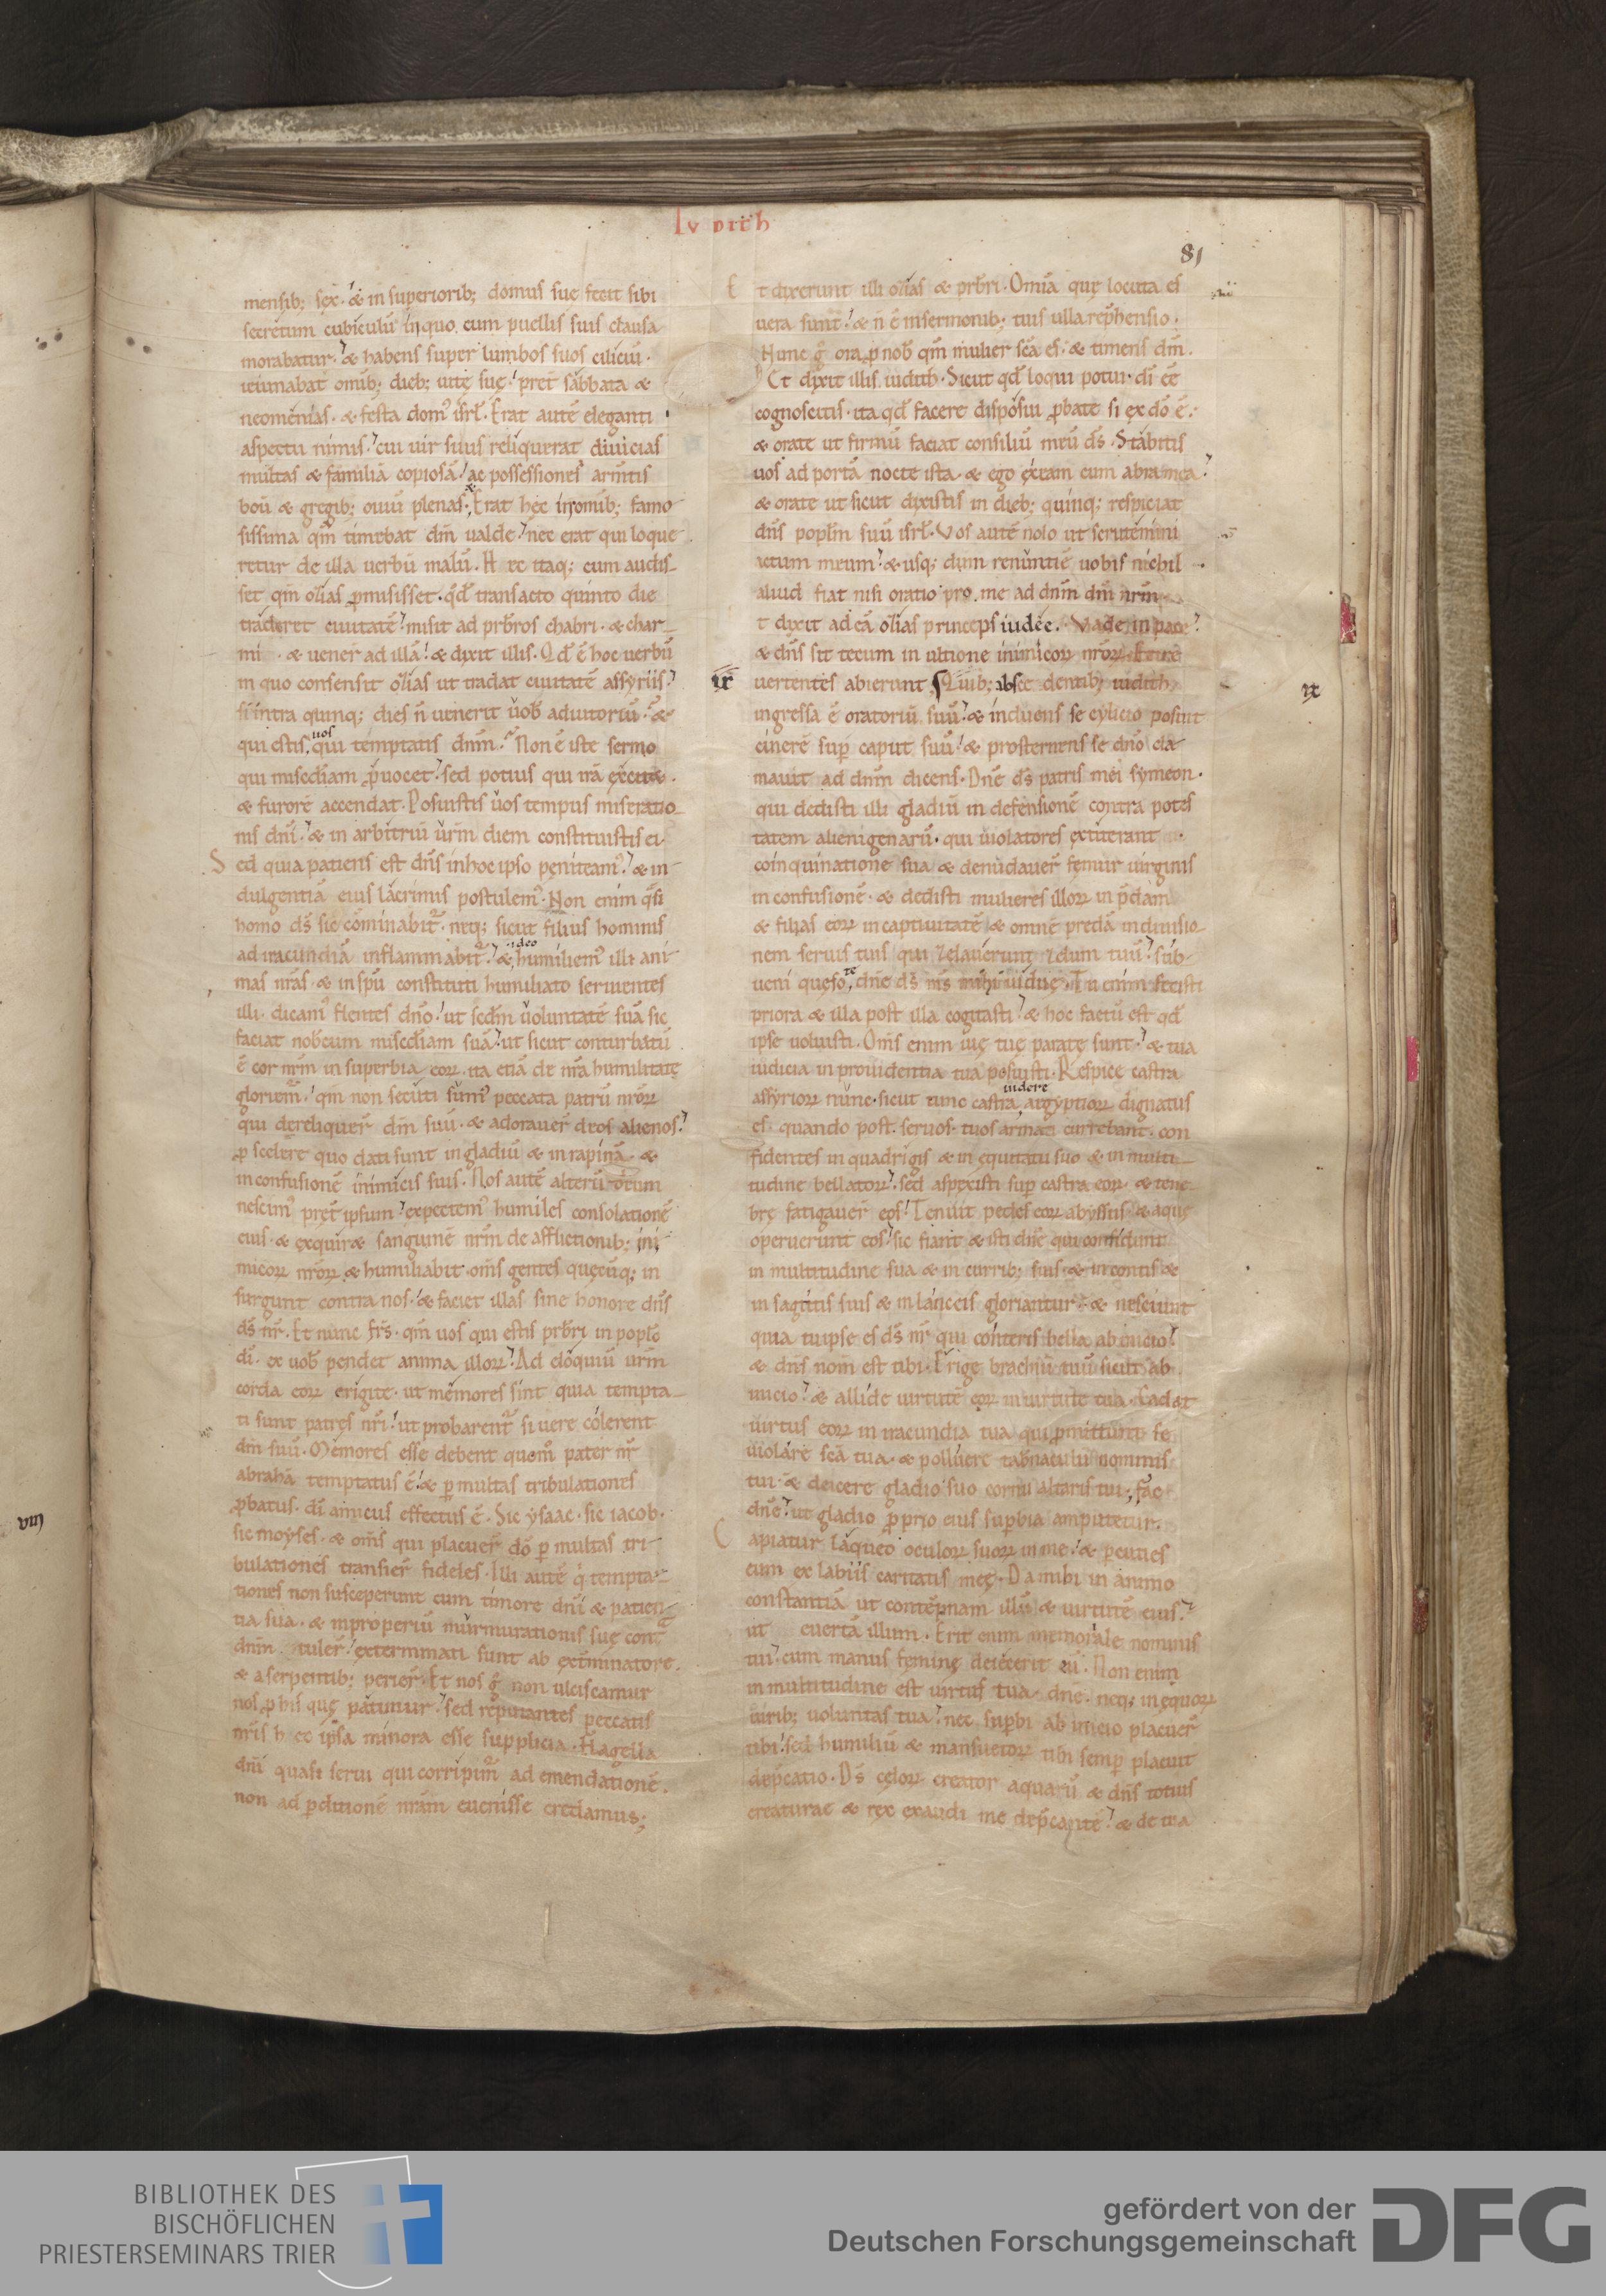 Iudith
81
mensib; sex. & in superiorib; domus sue fecit sibi
secretum cubiculū in quo cum puellis suis clausa
morabatur. & habens super lumbos suos ciliciū.
ieiunabat omīb; dieb; uitę suę. pret̄ sabbata &
neomenias. & festa dom' isr̄l. Erat autē eleganti
aspectu nimis. cui uir suus reliquerat diuicias
multas & familiā copiosā. ac possessiones arm̄tis
boū & gregib; ouiū plenas. & Erat hęc in omīb; famo
sissima qm̄ timebat dm̄ ualde. nec erat qui loque
retur de illa uerbū malū. Hec itaq; cum audis
set qm̄ ozias ꝓmisisset. qd̄ transacto quinto die
traderet ciuitatē. misit ad prb̄ros chabri. & char
mi. & uener̄ ad illā. & dixit illis. Qd̄ ē hoc uerbū
in quo consensit ozias ut tradat ciuitatē assyriis.
si intra quinq; dies n̄ uenerit uob̄ adiutoriū. &
qui estis uos qui temptatis dnm̄. Non ē iste sermo
qui misc̄diam ꝓuocet. sed potius qui irā excit&.
& furorē accendat. Posuistis uos tempus miseratio
nis dnī. & in arbitriū ur̄m diem constituistis ei.
Sed quia patiens est dn̄s in hoc ipso peniteam'. & in
dulgentiā eius lacrimis postulem'. Non enim q̄si
homo ds̄ sic cōminabit᷑. neq; sicut filius hominis
ad iracundiā inflammabit᷑. & ideo humiliem' illi ani
mas nr̄as. & in spū constituti humiliato seruientes
illi. dicam' flentes dn̄o. ut sc̄dm uoluntatē suā sic
faciat nobcum misc̄diam suā. ut sicut conturbatū
ē cor nr̄m in superbia eoꝝ. ita etiā de nr̄a humilitate
gloriem᷑. qm̄ non secuti sum' peccata patrū nr̄oꝝ
qui dereliquer̄ dm̄ suū. & adorauer̄ deos alienos.
ꝓ scelere quo dati sunt in gladiū & in rapinā. &
in confusionē inimicis suis. Nos autē alterū deum
nescim' pret̄ ipsum. expectem' humiles consolationē
eius. & exquir& sanguinē nr̄m de afflictionib; ini
micoꝝ nr̄oꝝ & humiliabit om̄s gentes quęcūq; in
surgunt contra nos. & faciet illas sine honore dn̄s
ds̄ nr̄. Et nunc fr̄s. qm̄ uos qui estis prb̄ri in poplo
dī. ex uob̄ pendet anima illoꝝ. Ad eloquiū ur̄m
corda eoꝝ erigite. ut memores sint quia tempta
ti sunt patres nr̄i. ut probarent᷑ si uere colerent
dm̄ suū. Memores esse debent quom̊ pater nr̄
abrahā temptatus ē. & ꝑ multas tribulationes
ꝓbatus. dī amicus effectus ē. Sic ysaac. sic iacob.
sic moyses. & om̄s qui placuer̄ dō ꝑ multas tri
bulationes transier̄ fideles. Illi autē qi tempta
tiones non susceperunt cum timore dnī & patien
tia sua. & inproperiū murmurationis suę cont᷑
dnm̄ tuler̄. exterminati sunt ab ext̄minatore.
& a serpentib; perier̄. Et nos g̊ non ulciscamur
nos ꝓ his quę patimur. sed reputantes peccatis
nr̄is hec ipsa minora esse supplicia. flagella
dnī quasi serui qui corripim᷑ ad emendationē.
non ad ꝑditionē nr̄am euenisse credamus;
Et dixerunt illi ozias & prb̄ri. Omīa quę locuta es
uera sunt. & n̄ ē in sermonib; tuis ulla reph̄ensio.
Nunc g̊ ora ꝓ nob̄ qm̄ mulier scā es. & timens dm̄.
Et dixit illis iudith. Sicut qd̄ loqui potui. dī eē
cognoscitis. ita qd̄ facere disposui ꝓbate si ex dō ē.
& orate ut firmū faciat consiliū meū ds̄. Stabitis
uos ad portā nocte ista. & ego exeam cum abra mea.
& orate ut sicut dixistis in dieb; quinq; respiciat
dn̄s poplm̄ suū isr̄l. Vos autē nolo ut scrutemini
actum meum. & usq; dum renuntiē uobis nichil
aliud fiat nisi oratio pro me ad dnm̄ dm̄ nr̄m
t dixit ad eā ozias princeps iudee. Vade in pace.
& dn̄s sit tecum in ultione inimicoꝝ nr̄oꝝ. Et re
ix
uertentes abierunt. Quib; absce dentib; iudith
ix
ingressa ē oratoriū suū. & induens se cylicio posuit
cinerē sup̱ caput suū. & prosternens se dn̄o cla
mauit ad dnm̄ dicens. Dn̄e ds̄ patris mei symeon.
qui dedisti illi gladiū in defensionē contra potes
tatem alienigenarū. qui uiolatores extiterant
coinquinatione sua & denudauer̄ femur uirginis
in confusionē. & dedisti mulieres illoꝝ in p̄dam
& filias eoꝝ in captiuitatē & omnē predā in diuisio
nem seruis tuis qui zelauerunt zelum tuū. sub
ueni quęso te dn̄e ds̄ m̄s mihi uiduę. Tu enim fecisti
priora & illa post illa cogitasti. & hoc factū est qd̄
ipse uoluisti. Om̄s enim uię tuę paratę sunt. & tua
iudicia in prouidentia tua posuisti. Respice castra
assyrioꝝ nunc. sicut tunc castra uidere ęgyptioꝝ dignatus
es. quando post seruos tuos armati currebant. con
fidentes in quadrigis & in equitatu suo & in multi
tudine bellatoꝝ. sed aspexisti sup̱ castra eoꝝ. & tene
brę fatigauer̄ eos. Tenuit pedes eoꝝ abyssus. & aquę
operuerunt eos. sic fiant & isti dn̄e qui confidunt
in multitudine sua & in currib; suis & in contis &
in sagittis suis & in lanceis gloriantur. & nesciunt
quia tu ipse es ds̄ nr̄ qui conteris bella ab inicio.
& dn̄s nom̄ est tibi. Erige brachiū tuū sicut ab
inicio. & allide uirtutē eoꝝ in uirtute tua. Cadat
uirtus eoꝝ in iracundia tua qui ꝓmittunt se
uiolare scā tua. & polluere tab̄naculū nominis
tui. & deicere gladio suo cornu altaris tui. fac
dn̄e. ut gladio ꝓprio eius sup̱bia amputetur.
Capiatur laqueo oculoꝝ suoꝝ in me. & ꝑcuties
eum ex labiis caritatis meę. Da mihi in animo
constantiā ut contēpnam illū & uirtutē eius.
ut euertā illum. Erit enim memoriale nominis
tui. cum manus feminę deiecerit eū. Non enim
in multitudine est uirtus tua dn̄e. neq; in equoꝝ
uirib; uoluntas tua. nec sup̱bi ab inicio placuer̄
tibi. sed humiliū & mansuetoꝝ tibi semp̱ placuit
dep̄catio. Ds̄ cęloꝝ creator aquarū & dn̄s totius
creaturae & rex exaudi me dep̄cantē. & de tua
viii
BIBLIOTHEK DES
BISCHÖFLICHEN
PRIESTERSEMINARS TRIER
gefördert von der
Deutschen Forschungsgemeinschaft
DFG